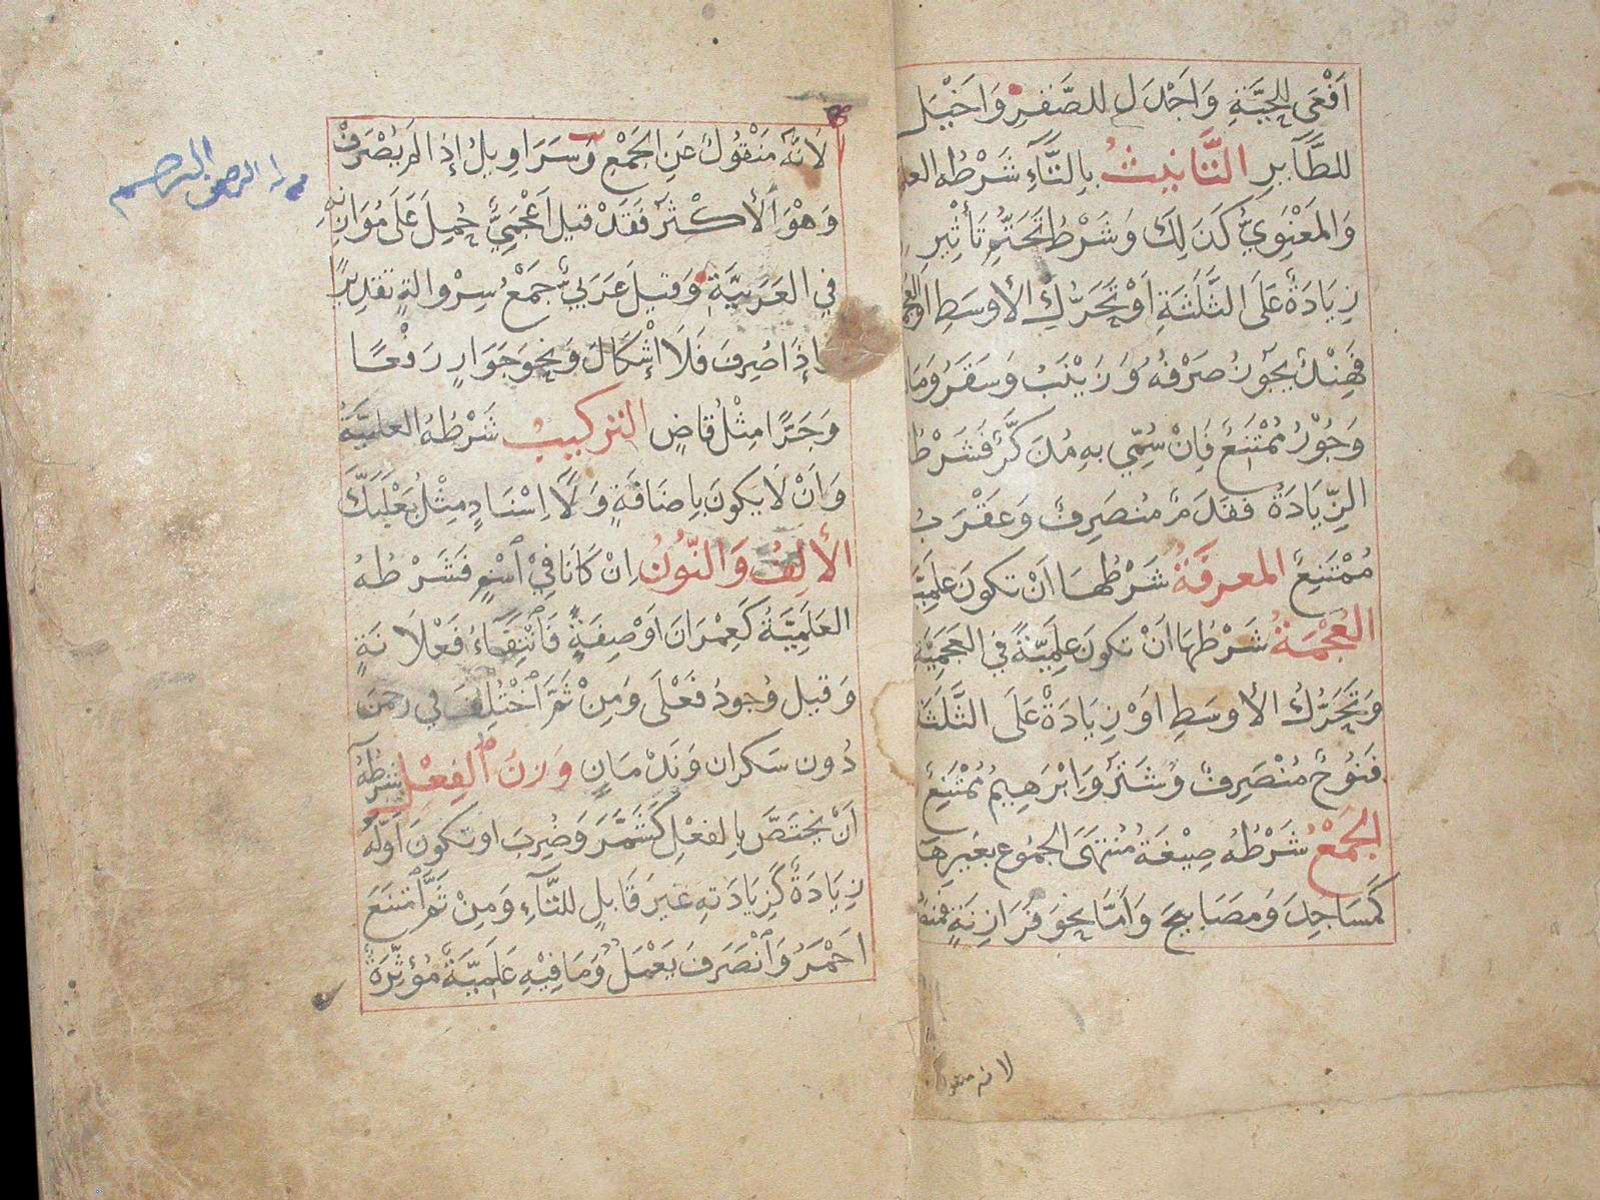 اَفْعَى لِلْحَيَّةِ وَاَجْدَلٍ لِلصَّقْرِ وَاَخْيَلِ
لِلطَّآيِرِ التَّانِيثُ بِالتَّآءِ شَرْطُه العلم
وَالمَعْنَوِيُّ كَذَلِكَ وَشَرْطُ تَحَتُّمِ تَأْثِيرِ
زِيَادَةٌ عَلَى الثَّلَثَةِ اَوْ تَحَرُّكُ الأوسَطِ اوالعجمة
فَهِنْدٌ يجُوزُ صَرْفُهُ وَزَيْنَبُ وَسَقَرُ وَمَاه
وَجُوْرُ مُمْتَنِعٌ فَاِنْ سُمِّي بهِ مُذَكَّرٌ فَشَرْطُه
الزِّيَادَةُ فَقَدَمٌ مُنصَرِفٌ وَعَقْرَبُ
مُمْتَنِعٌ المعرفَةُ شَرْطُهَا اَنْ تكونَ عَلَمِيَّة
العُجْمَةُ شَرْطُهَا اَنْ تكونَ عَلَمِيَّةً في العَجَمِيَّةِ
وَتَحَرُّكُ الأوسَطِ اَوْ زِيَادَةٌ عَلَى الثَّلَثَة
فَنُوحٌ مُنْصَرِفٌ وَشَتَرُ وَاِبْرَهِيمُ مُمْتَنِعٌ
الجَمْعُ شَرْطُهُ صِيغَةُ مُنْتَهَى الجُمُوع بغَيرِ هَآ
كَمَسَاجِدَ وَمَصَابيحَ وَاَمَّا نحوَ فَرَازِنَةٍ فَمنصرف
لانه منقول
لِاَنَّهُ مَنْقُولٌ عَنِ الجَمْعِ وَسَرَاوِيلُ إِذَا لَم يُصْرَفْ
وَهْوَ الأَكْثَرُ فَقَدْ قيلَ اَعْجَمِيٌّ حُمِلَ عَلَى مُوَازِنِهِ
في العَرَبِيَّةِ وَقيلَ عَرَبيٌّ جَمْعُ سِرْوالةٍ تقديرًا
وإذَا صُرِفَ فَلَا اِشْكَالَ وَنَحْوَ جَوَارٍ رَفْعًا
وَجَرًّا مِثْلُ قاضٍ التركيبُ شَرْطُهُ العلميَّةُ
وَاَنْ لَا يكونَ بِاِضَافَةٍ وَلَا اِسْنَادٍ مِثْلُ بَعْلَبَكَّ
الألِفُ وَالنُّونُ اِنْ كَانَا فِيْ اسْمٍ فَشَرْطُهُ
العَلَمِيَّةُ كَعِمْرَانَ اَوْ صِفَةٍ فَانْتِقَاءُ فَعْلَانَةٍ
وَقيلَ وُجودُ فَعْلَى وَمِنْ ثَمَّ اخْتُلِفَ في رحمن
دُون سَكران وَنَدْمَانٍ وَزنُ الفِعْلِ شرطُهُ
اَنْ يختَصَّ بِالفعْلِ كَشَمَّرَ وَضُرِبَ او تكونَ اَوَّلَهُ
زِيَادَةٌ كَزِيَادَتهِ غيرَ قَابلٍ للتَّآءِ وَمِنْ ثَمَّ امْتَنَعَ
اَحْمَرُ وَانْصَرَفَ يَعْمَلٌ وَمَا فيْهِ عَلَمِيَّةٌ مُؤثِّرَةٌ
الرحمن الرحيم